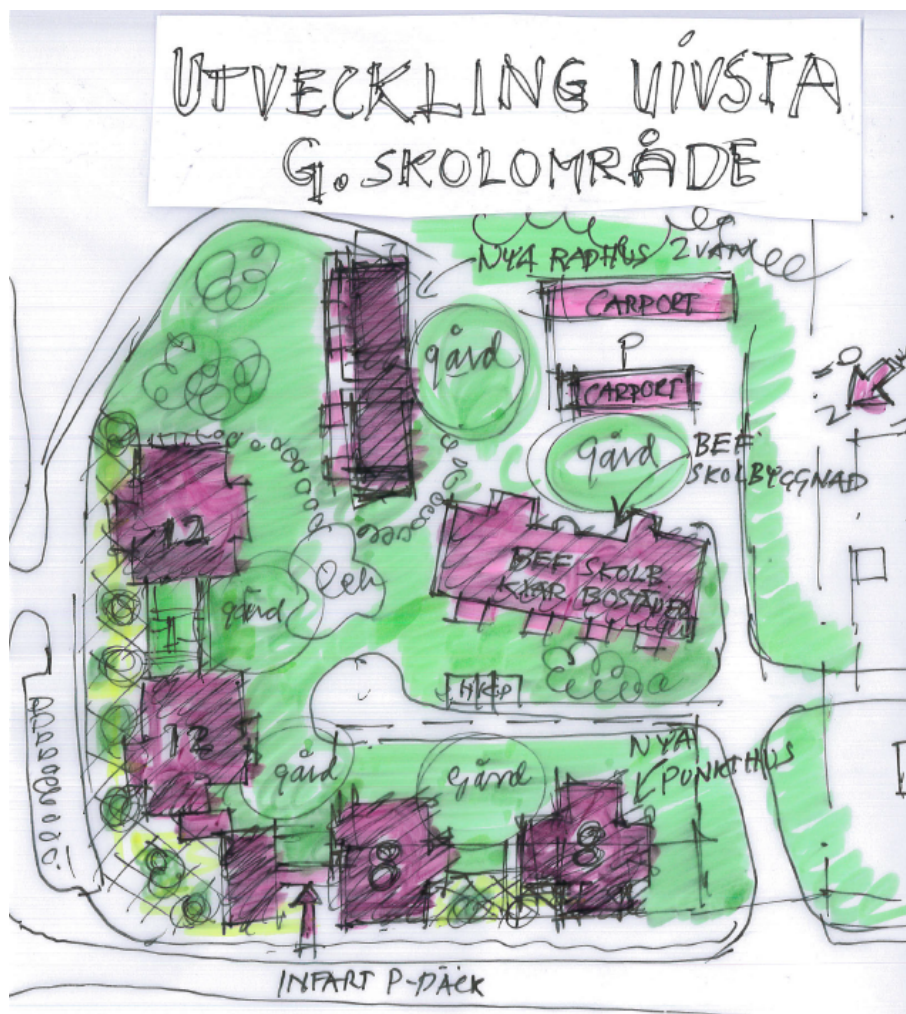 UTVECKLING VIVSTA
G. SKOLOMRÅDE
NYA RADHUS 2 VÅN
CARPORT
P
CARPORT
gård
gård
BEF
SKOLBYGGNAD
N
12
BEF SKOLB
gård
HKP
12
gård
gård
NYA
PUNKTHUS
8
8
INFART P-DÄCK